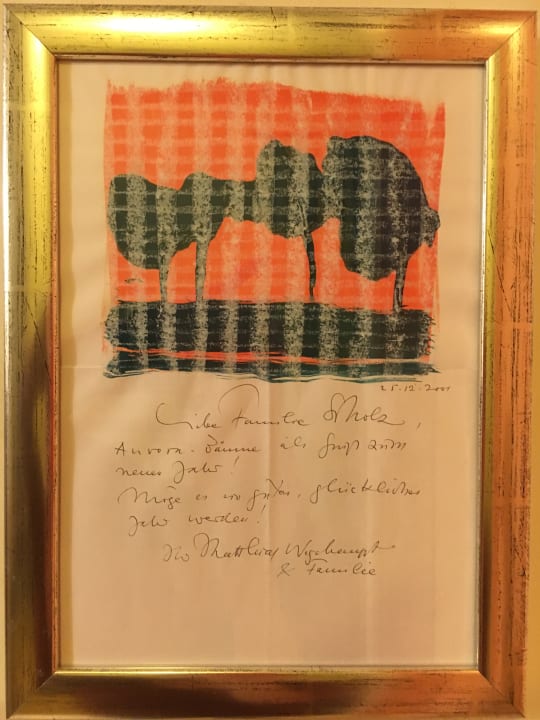 25.12.2001
Liebe Familie Scholz,
Aurora-Bäume als Gruß zum
neuen Jahr!
Möge es ein gutes, glückliches
Jahr werden!
Ihr Matthias
& Familie